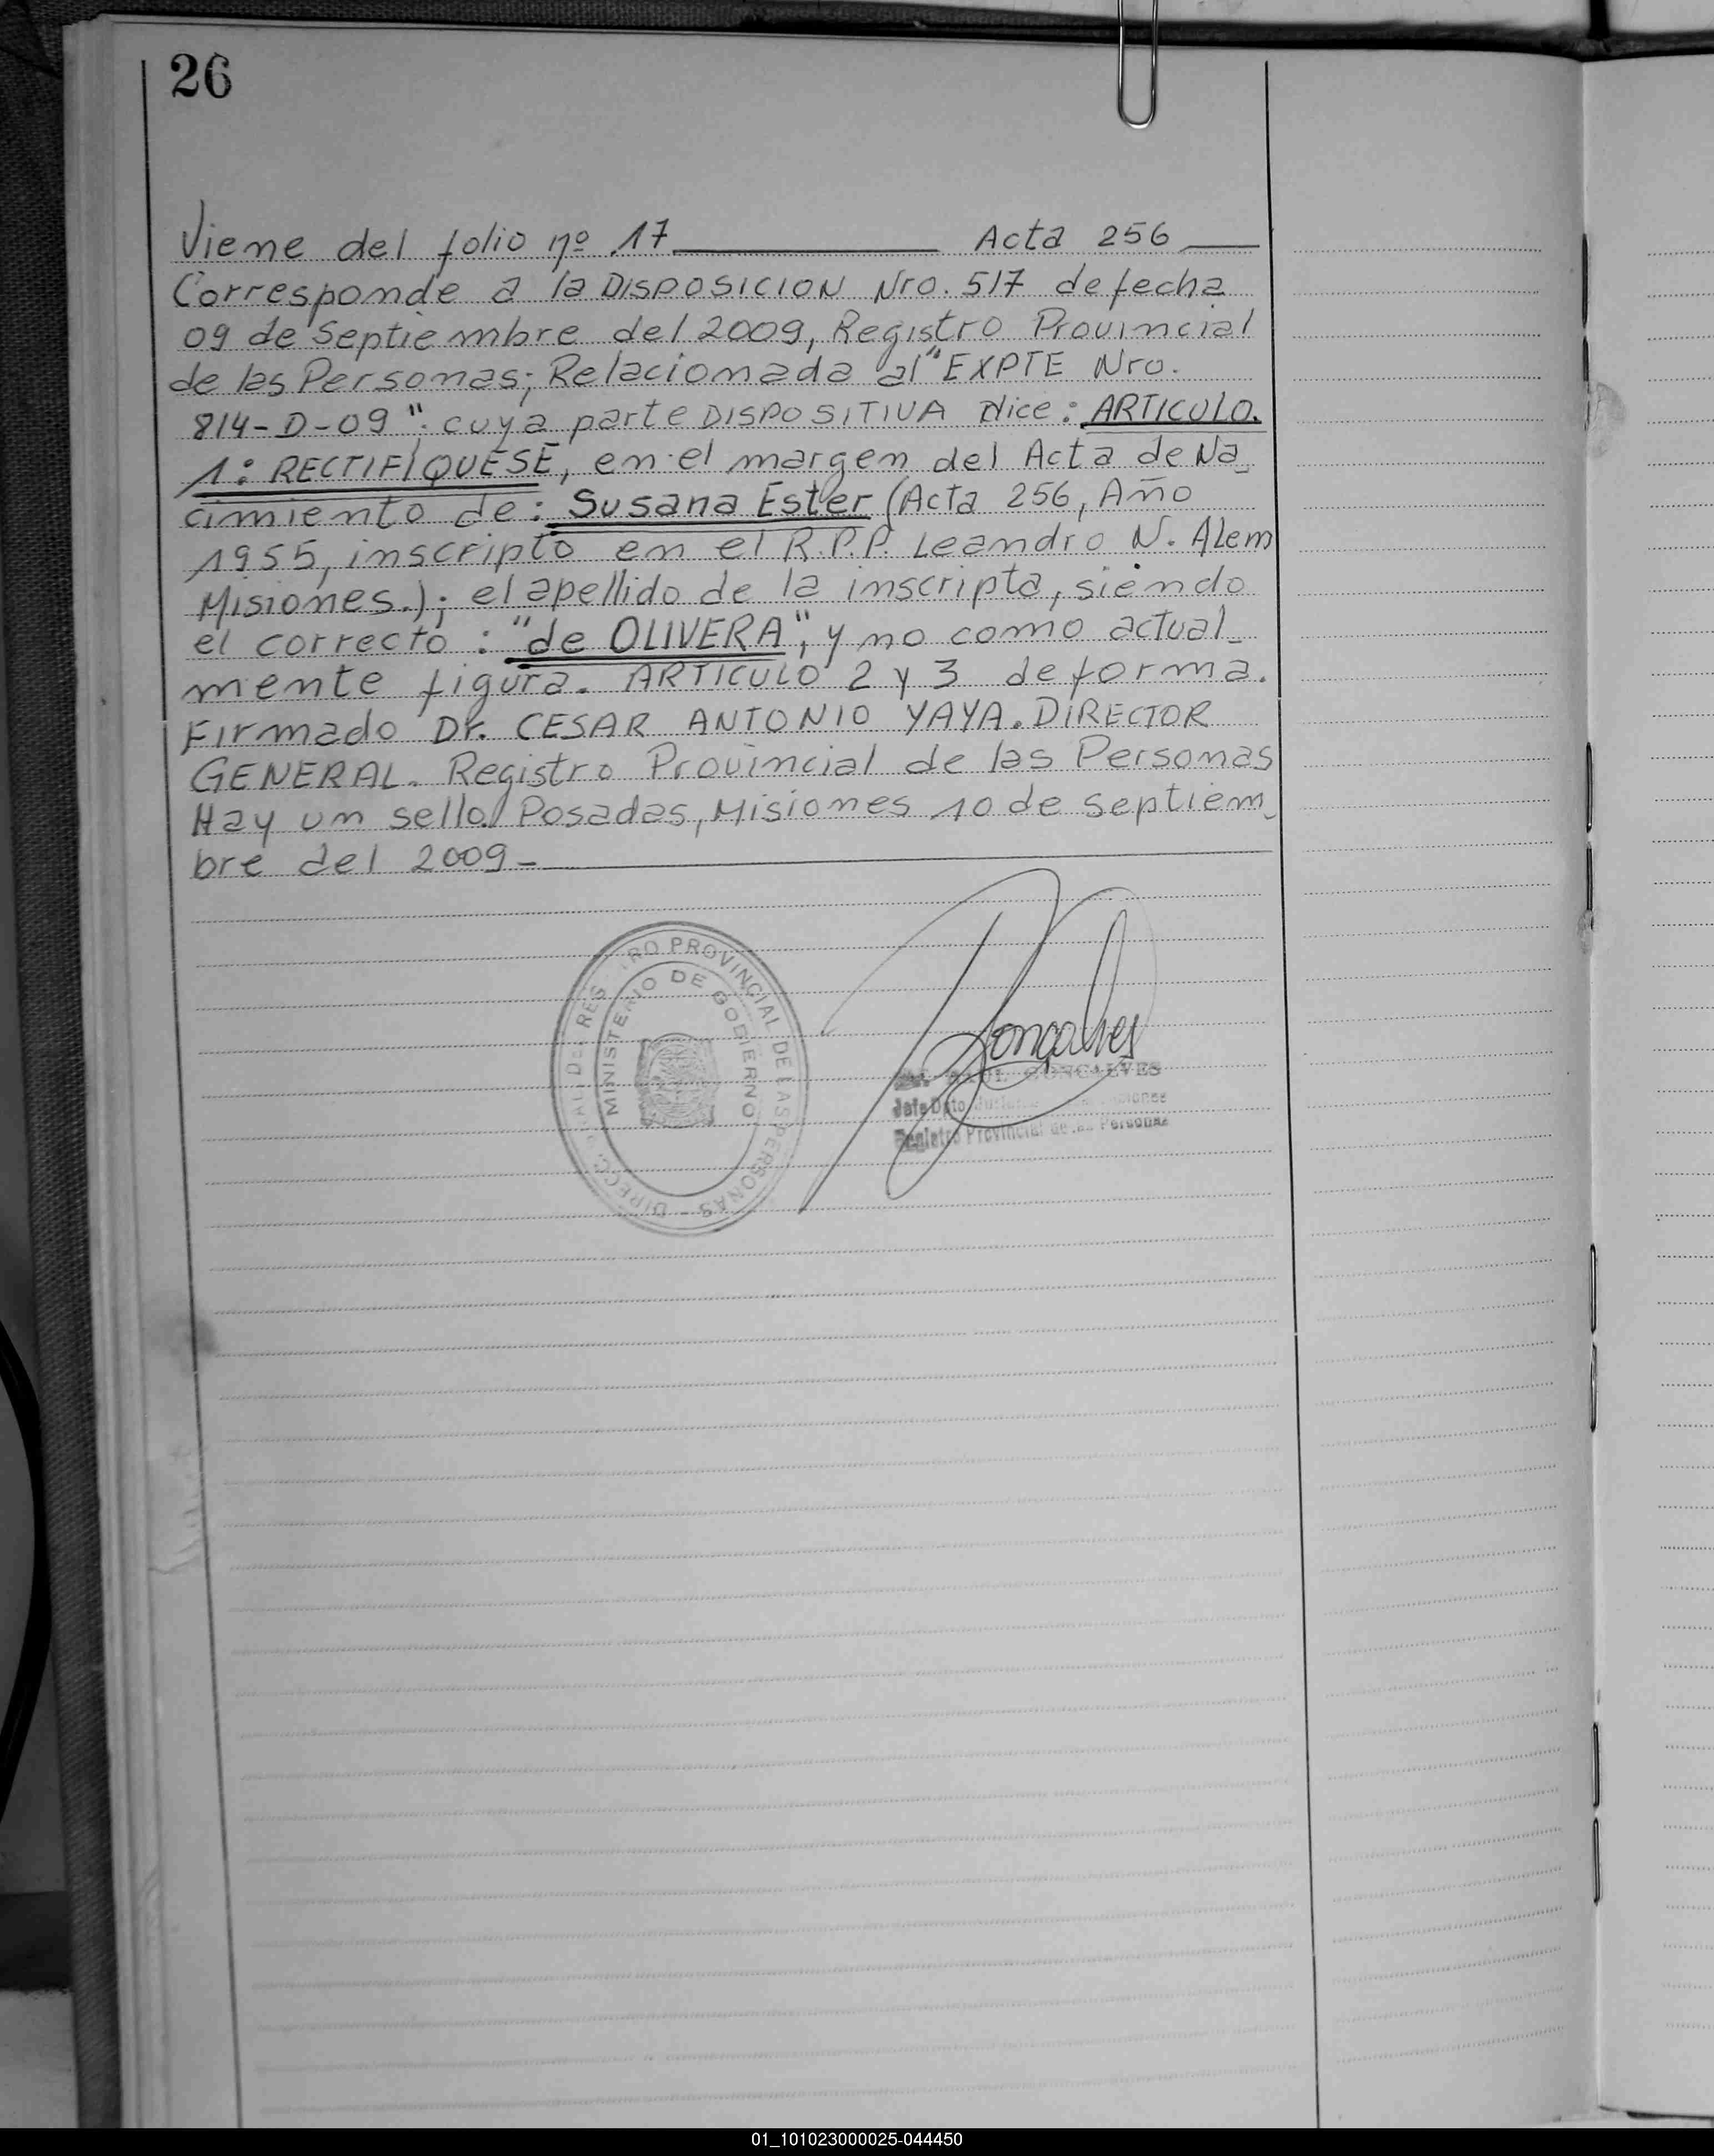 26
Viene del folio nº 17 Acta 256
Corresponde a la DISPOSICION Nro. 517 de fecha
09 de Septiembre del 2009, Registro Provincial
de las Personas; Relacionada al "EXPTE Nro.
814-D-09"; cuya parte DISPOSITIVA dice: ARTICULO.
1: RECTIFIQUESE, en el margen del Acta de Na_
cimiento de: Susana Ester (Acta 256, Año
1955, inscripto en el R.P.P. Leandro N. Alem
Misiones.); el apellido de la inscripta, siendo
el correcto: "de OLIVERA", y no como actual_
mente figura. ARTICULO 2 y 3 de forma.
Firmado Dr. CESAR ANTONIO YAYA. DIRECTOR
GENERAL. Registro Provincial de las Personas
Hay un sello. Posadas, Misiones 10 de Septiem_
bre del 2009-
PROVINCIAL DE LAS PERSONAS
MINISTERIO DE GOBIERNO
Gonçalves
GONCALVES
Jefe Dpto
Registro Provincial de las Personas
01_101023000025-044450